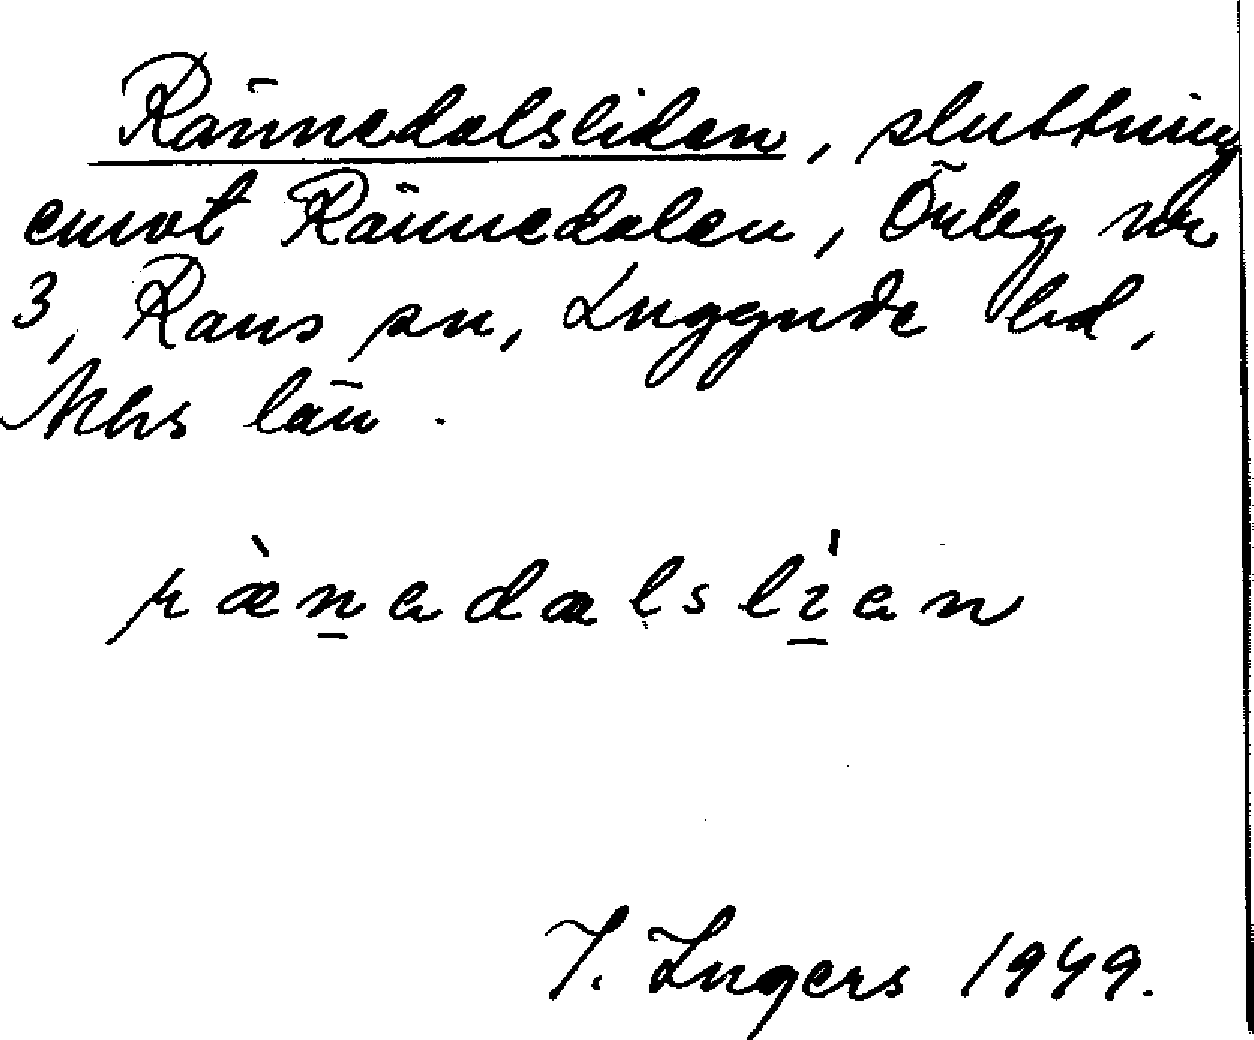 Rännedalsliden, sluttning
emot Rännedalen, Örby nr
3, Raus sn, Luggude hd,
Mhs län.
rænadalslian
I. Ingers 1949.